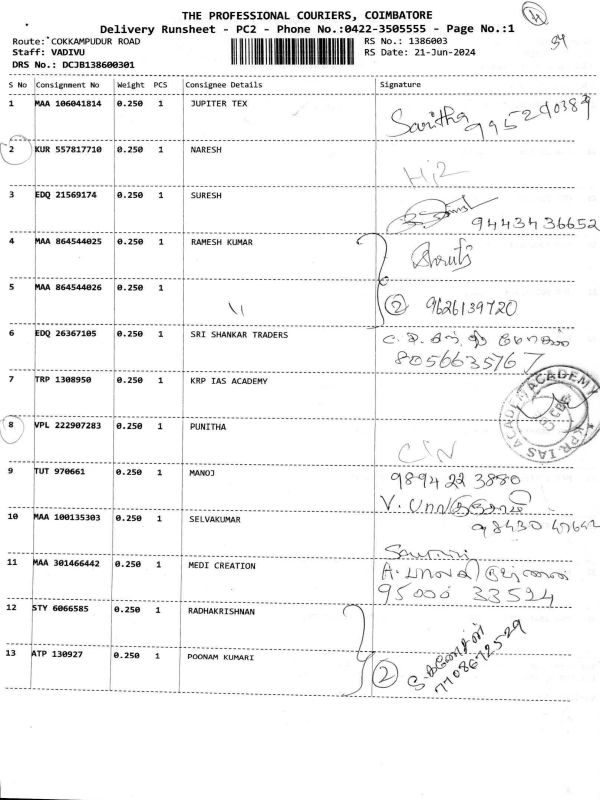 THE PROFESSIONAL COURIERS, COIMBATORE
Delivery Runsheet - PC2 - Phone No.:0422-3505555 - Page No.:1
Route: COKKAMPUDUR ROAD RS No.: 1386003
Staff: VADIVU RS Date: 21-Jun-2024
DRS No.: DCJB138600301
S No Consignment No Weight PCS Consignee Details Signature
1 MAA 106041814 0.250 1 JUPITER TEX
Saritha 995290389
2 KUR 557817710 0.250 1 NARESH
3 EDQ 21569174 0.250 1 SURESH
9443436652
4 MAA 864544025 0.250 1 RAMESH KUMAR
5 MAA 864544026 0.250 1 \\
2 9626139720
6 EDQ 26367105 0.250 1 SRI SHANKAR TRADERS
8056635767
7 TRP 1308950 0.250 1 KRP IAS ACADEMY
KPR IAS ACADEMY
8 VPL 222907283 0.250 1 PUNITHA
9 TUT 970661 0.250 1 MANOJ
9894223880
10 MAA 100135303 0.250 1 SELVAKUMAR
11 MAA 301466442 0.250 1 MEDI CREATION
95000 33524
12 STY 6066585 0.250 1 RADHAKRISHNAN
13 ATP 130927 0.250 1 POONAM KUMARI
2 S. கணேசன்
7708672529